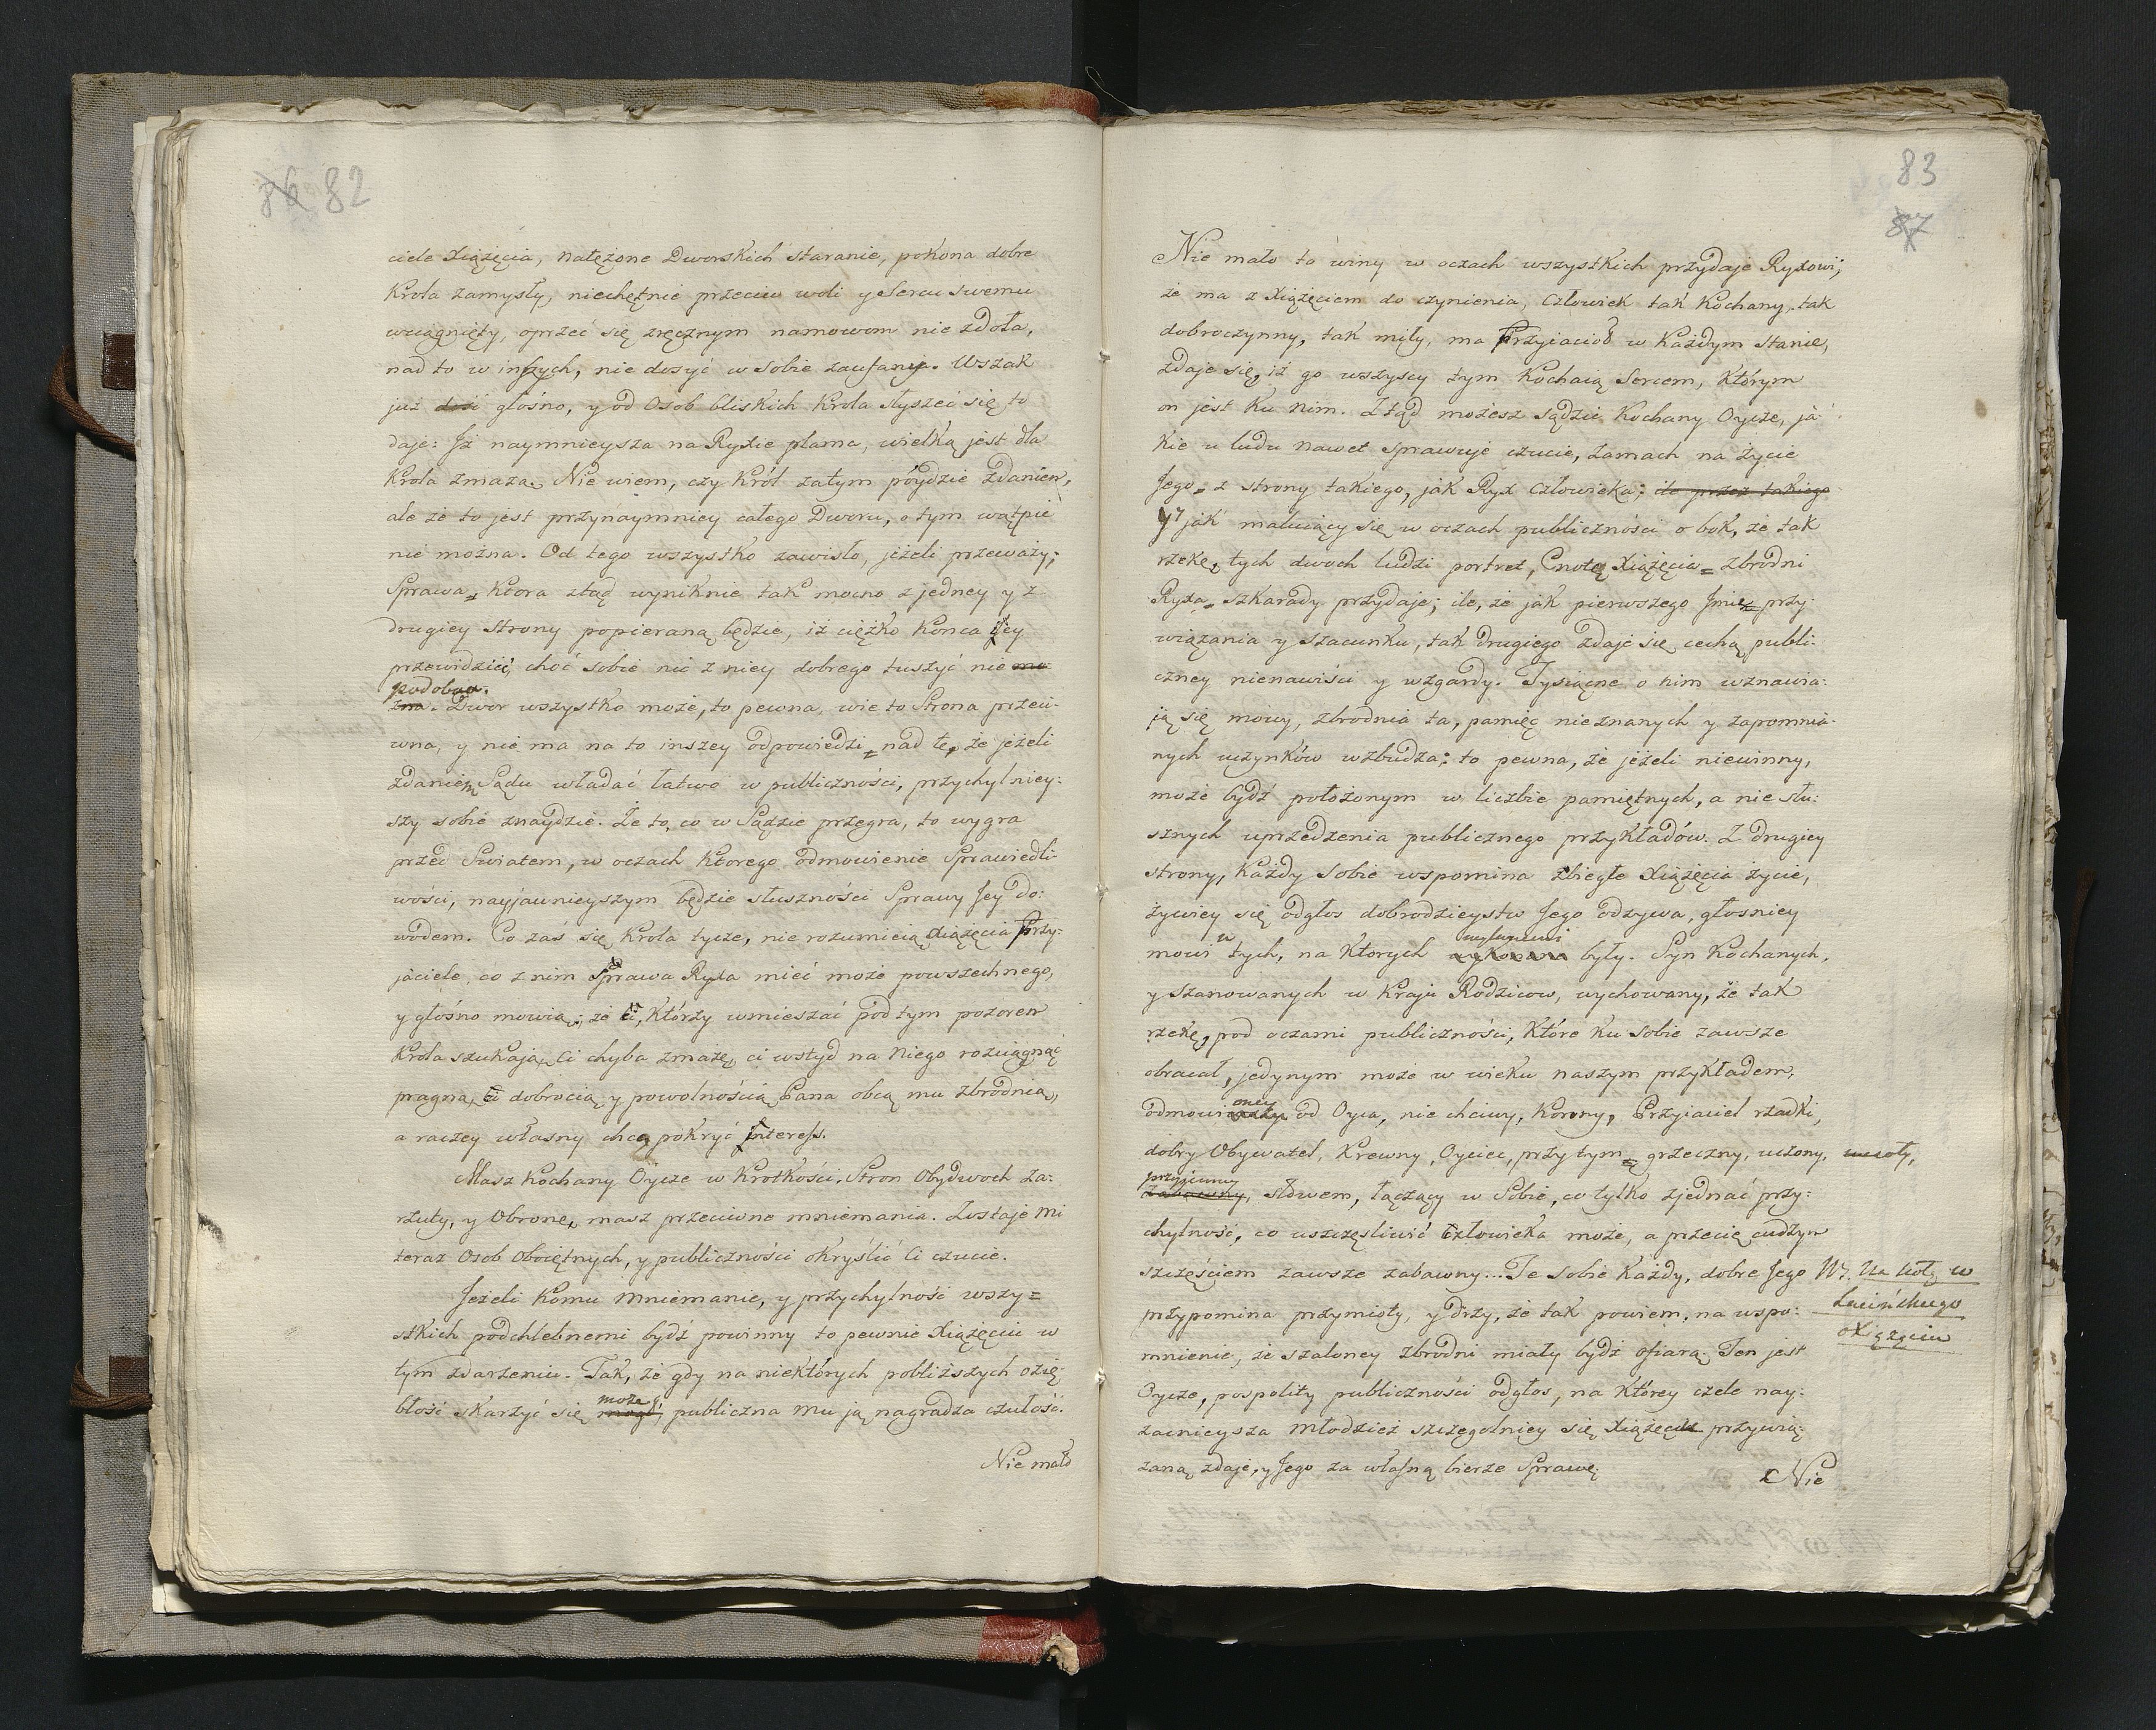 86 82
ciele Xiążęcia, natężone Dworskich staranie, pokona dobre
Krola zamysły, niechętnie przeciw woli y Sercu swemu
wciągnięty, oprzeć się zręcznym namowom nie zdoła,
nad to w inszych, nie dosyć w sobie zaufany. Wszak
już dość głośno, y od Osob bliskich Krola słyszeć się to
daje: Iż naymnieysza na Ryxie plama, wielką jest dla
Krola zmaza. Nie wiem, czy Król zatym póydzie zdaniem,
ale że to jest przynaymniey całego Dworu, o tym wątpić
nie można. Od tego wszystko zawisło, jeżeli przeważy;
Sprawa, Ktora ztąd wyniknie tak mocno z jedney y z
drugiey strony popieraną będzie, iż ciężko Konca Jey
przewidzieć, choć sobie nic z niey dobrego tuszyć nie mo
podobna.
zna. Dwor wszystko może, to pewna, wie to Strona przeci-
wna, y nie ma na to inszey odpowiedzi nad tę, że jeżeli
zdaniem Sądu władać łatwo w publiczności, przychylniey-
szy sobie znaydzie. Że to, co w Sądzie przegra, to wygra
przed Swiatem, w oczach Ktorego odmowienie Sprawiedli-
wości, nayjawnieyszym będzie słuszności Sprawy Jey do:
wodem. Co zaś się Krola tycze, nie rozumieią Xiążęcia Przy-
jaciele, co z nim Sprawa Ryxa mieć może powszechnego,
y głośno mowią; że ci, Którzy wmieszać pod tym pozorem
Krola szukają, ci chyba zmazę, ci wstyd na Niego rozciągnąć
pragną, ci dobrocią y powolnością Pana obcą mu zbrodnią,
a raczey własny chcą pokryć Interess.
Masz Kochany Oycze w Krotkości, Stron Obydwoch za:
rzuty, y Obronę, masz przeciwne mniemania. Zostaje mi
teraz Osob Oboiętnych, y publiczności okryślić Ci czucie.
Jeżeli Komu Mniemanie, y przychylność wszy=
stkich podchlebnemi bydź powinny to pewnie Xiążęciu w
tym zdarzeniu. Tak, że gdy na niektórych pobliższych ozię-
może
błość skarżyć się mogł, publiczna mu ją nagradza czułość.
Nie mało
83
87
Nie mało to winy w oczach wszystkich przydaje Ryxowi,
że ma z Xiążęciem do czynienia, Człowiek tak Kochany, tak
dobroczynny, tak miły, ma Przyiaciół w Każdym Stanie,
zdaje się, iż go wszyscy tym Kochaią Sercem, Którym
on jest Ku nim. Ztąd możesz sądzić Kochany Oycze, ja-
Kie u ludu nawet sprawuje czucie, zamach na życie
Jego z strony takiego, jak Ryx Człowieka; ile przez takiego
y jak maluiący się w oczach publiczności o bok, że tak
rzekę, tych dwoch ludzi portret, Cnotę Xiążęcia = zbrodni
Ryxa szkarady przydaje; ile, że jak pierwszego Jmię przy-
wiązania y szacunku, tak drugiego zdaje się cechą publi-
czney nienawiści y wzgardy. Tysiączne o nim wznawia-
ją się mowy, zbrodnia ta, pamięć nieznanych y zapomnia-
nych uczynków wzbudza; to pewna, że jeżeli niewinny,
może bydź położonym w liczbie pamiętnych, a nie słu-
sznych uprzedzenia publicznego przykładów. Z drugiey
strony, Każdy sobie wspomina zbiegłe Xiążęcia życie,
żywiey się odgłos dobrodzieystw Jego odzywa, głosniey
mowi u tych, na Ktorych były. Syn Kochanych,
y szanowanych w Kraju Rodzicow, wychowany, że tak
rzekę, pod oczami publiczności, Które Ku sobie zawsze
obracał, jedynym może w wieku naszym przykładem,
oney
odmowi od Oyca, nie chciwy, Korony, Przyiaciel rzadki,
dobry Obywatel, Krewny, Oyciec, przy tym grzeczny, uczony, wesoły,
przyjemny
zabawny, słowem, łączący w Sobie, co tylko zjednać przy:
chylność, co uszczęśliwić Człowieka może, a przecię cudzym
szczęściem zawsze zabawny... Te sobie Każdy, dobre Jego
przypomina przymioty, y drży, że tak powiem, na wspo:
mnienie, że szaloney zbrodni miały bydź ofiarą. Ten jest
Oycze, pospolity publiczności odgłos, na Którey czele nay-
zacnieysza Młodzież szczegolniey się Xiążęciu przywią-
zaną zdaje, y Jego za własną bierze Sprawę.
Na w
Xiążęciu
Nie